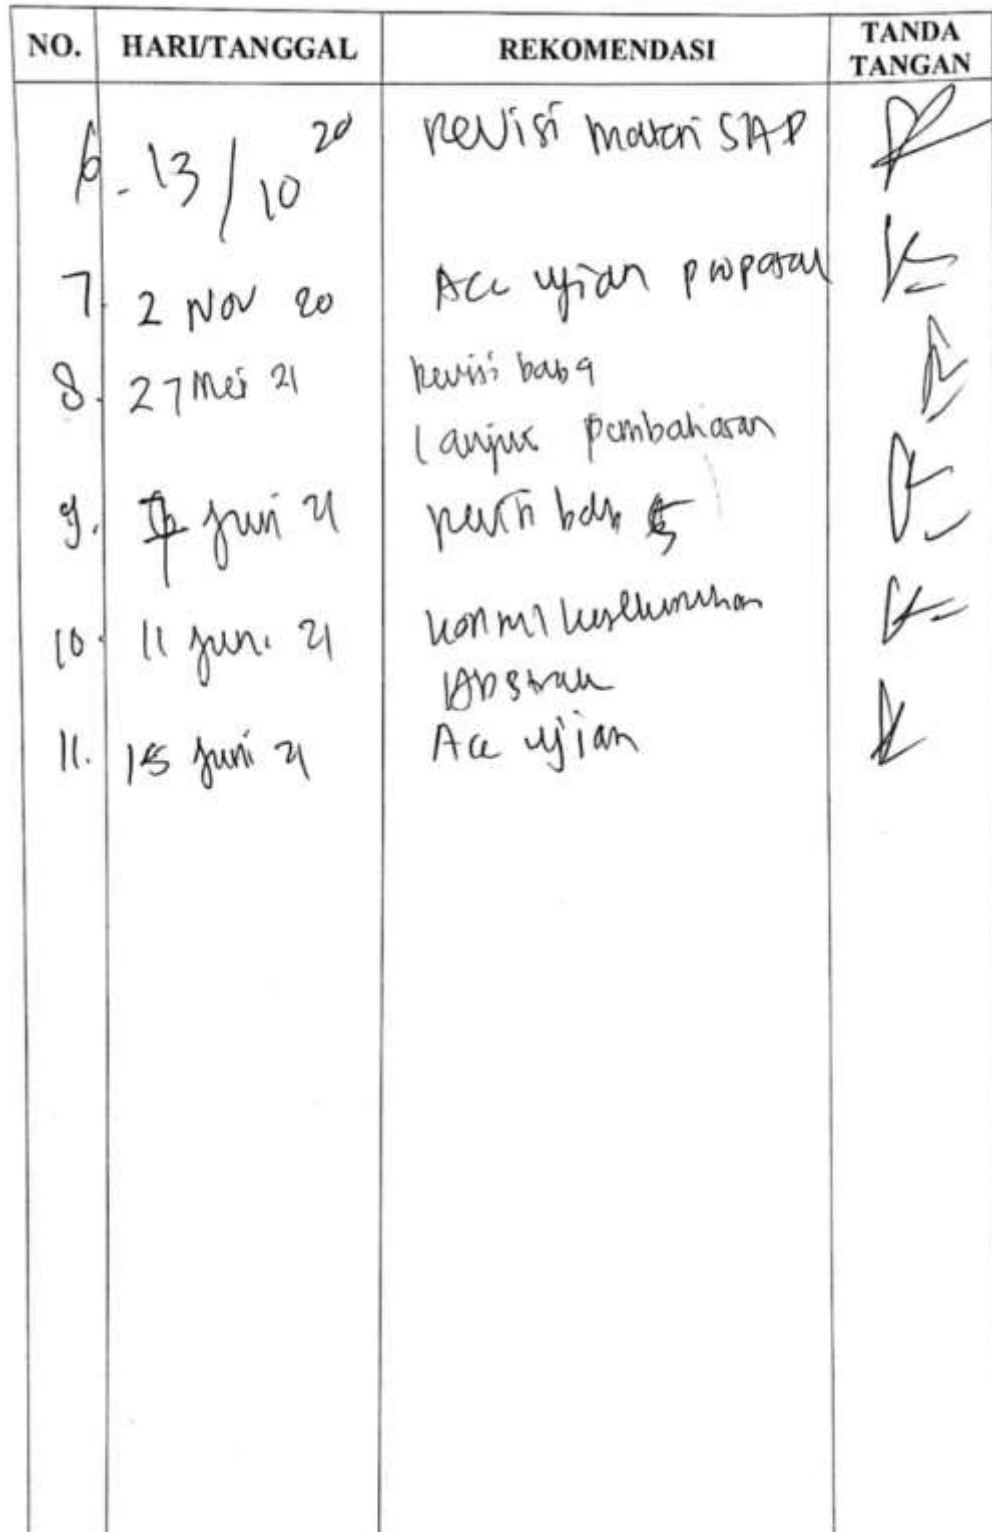 NO. HARI/TANGGAL REKOMENDASI TANDA TANGAN
6. 13/10 20 Revisi Materi SAP
7. 2 Nov 20 Acc ujian proposal
8. 27 Mei 21 Revisi bab 4
lanjut pembahasan
9. Juni 21 Revisi bab 5
10. 11 Juni 21 keseluruhan
Abstrak
11. 15 Juni 21 Acc ujian